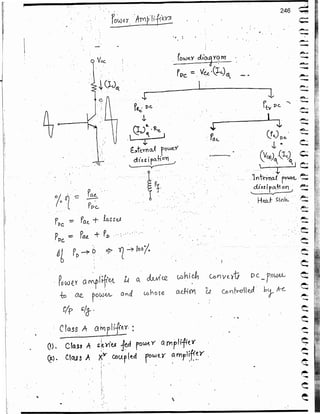 246
Power Amplifiers
Power diagram
Vcc
P_DC = Vcc·(I_c)_Q
(I_c)_Q
P_Rc DC
P_tr DC
(I_c)²_Q · R_c
P_ac
(P_D)_DC
External power dissipation
(V_CE)_Q (I_c)_Q
Internal power dissipation
Heat Sink.
% η = P_ac / P_DC
P_DC = P_ac + losses
P_DC = P_ac + P_D
if P_D → 0 ⇒ η → 100%
Power amplifier is a device which converts DC power
to ac power and whose action is controlled by AC
i/p sig.
Class A amplifier :
(1). Class A series fed power amplifier
(2). Class A Xr coupled power amplifier.